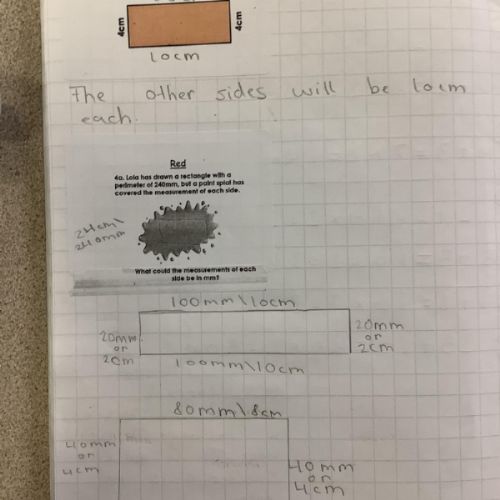 4cm
4cm
10cm
The other sides will be 10cm
each.
Red
4a. Lola has drawn a rectangle with a
perimeter of 240mm, but a paint splat has
covered the measurement of each side.
24cm\
240mm
What could the measurements of each
side be in mm?
100mm\10cm
20mm
or
20m
20mm
or
2cm
100mm\10cm
80mm\8cm
40mm
or
4cm
40mm
or
4cm